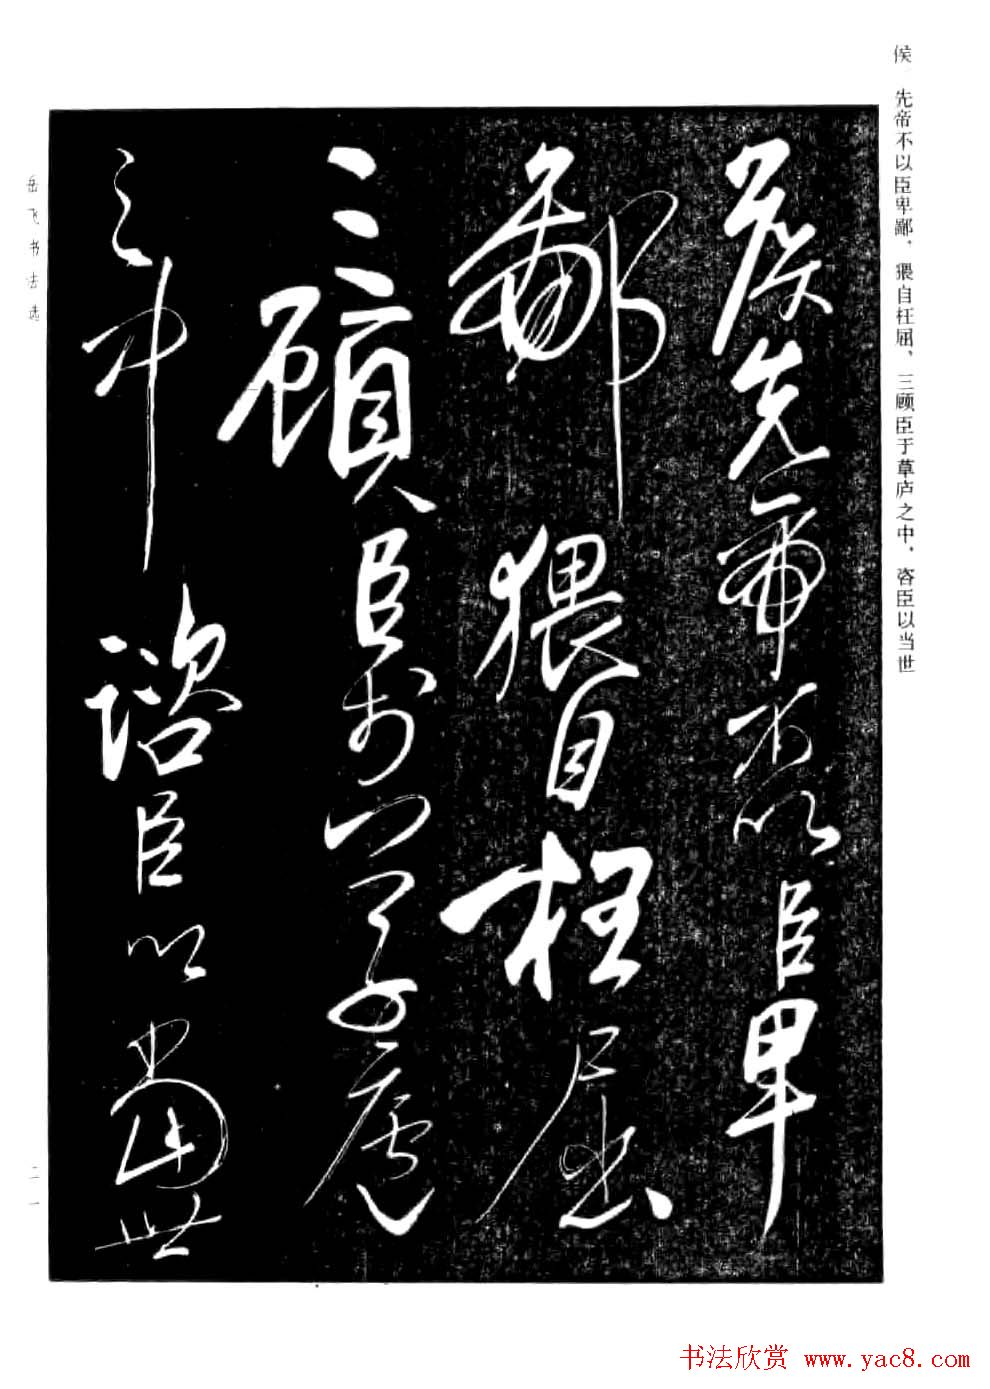 侯 先帝不以臣卑鄙，猥自枉屈，三顾臣于草庐之中，咨臣以当世
侯先帝不以臣卑
鄙猥自枉屈
三顧臣於草廬
之中諮臣以當世
岳飞书法选
二一
书法欣赏 www.yac8.com